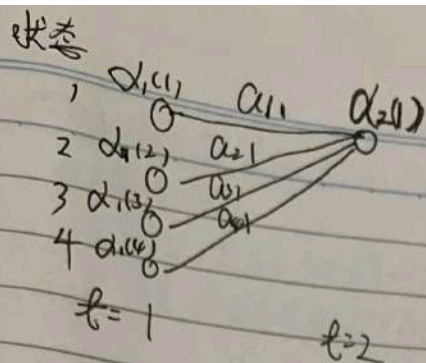 状态
1 α₁(1) a₁₁ α₂(1)
2 α₁(2) a₂₁
3 α₁(3) a₃₁
4 α₁(4) a₄₁
t=1 t=2